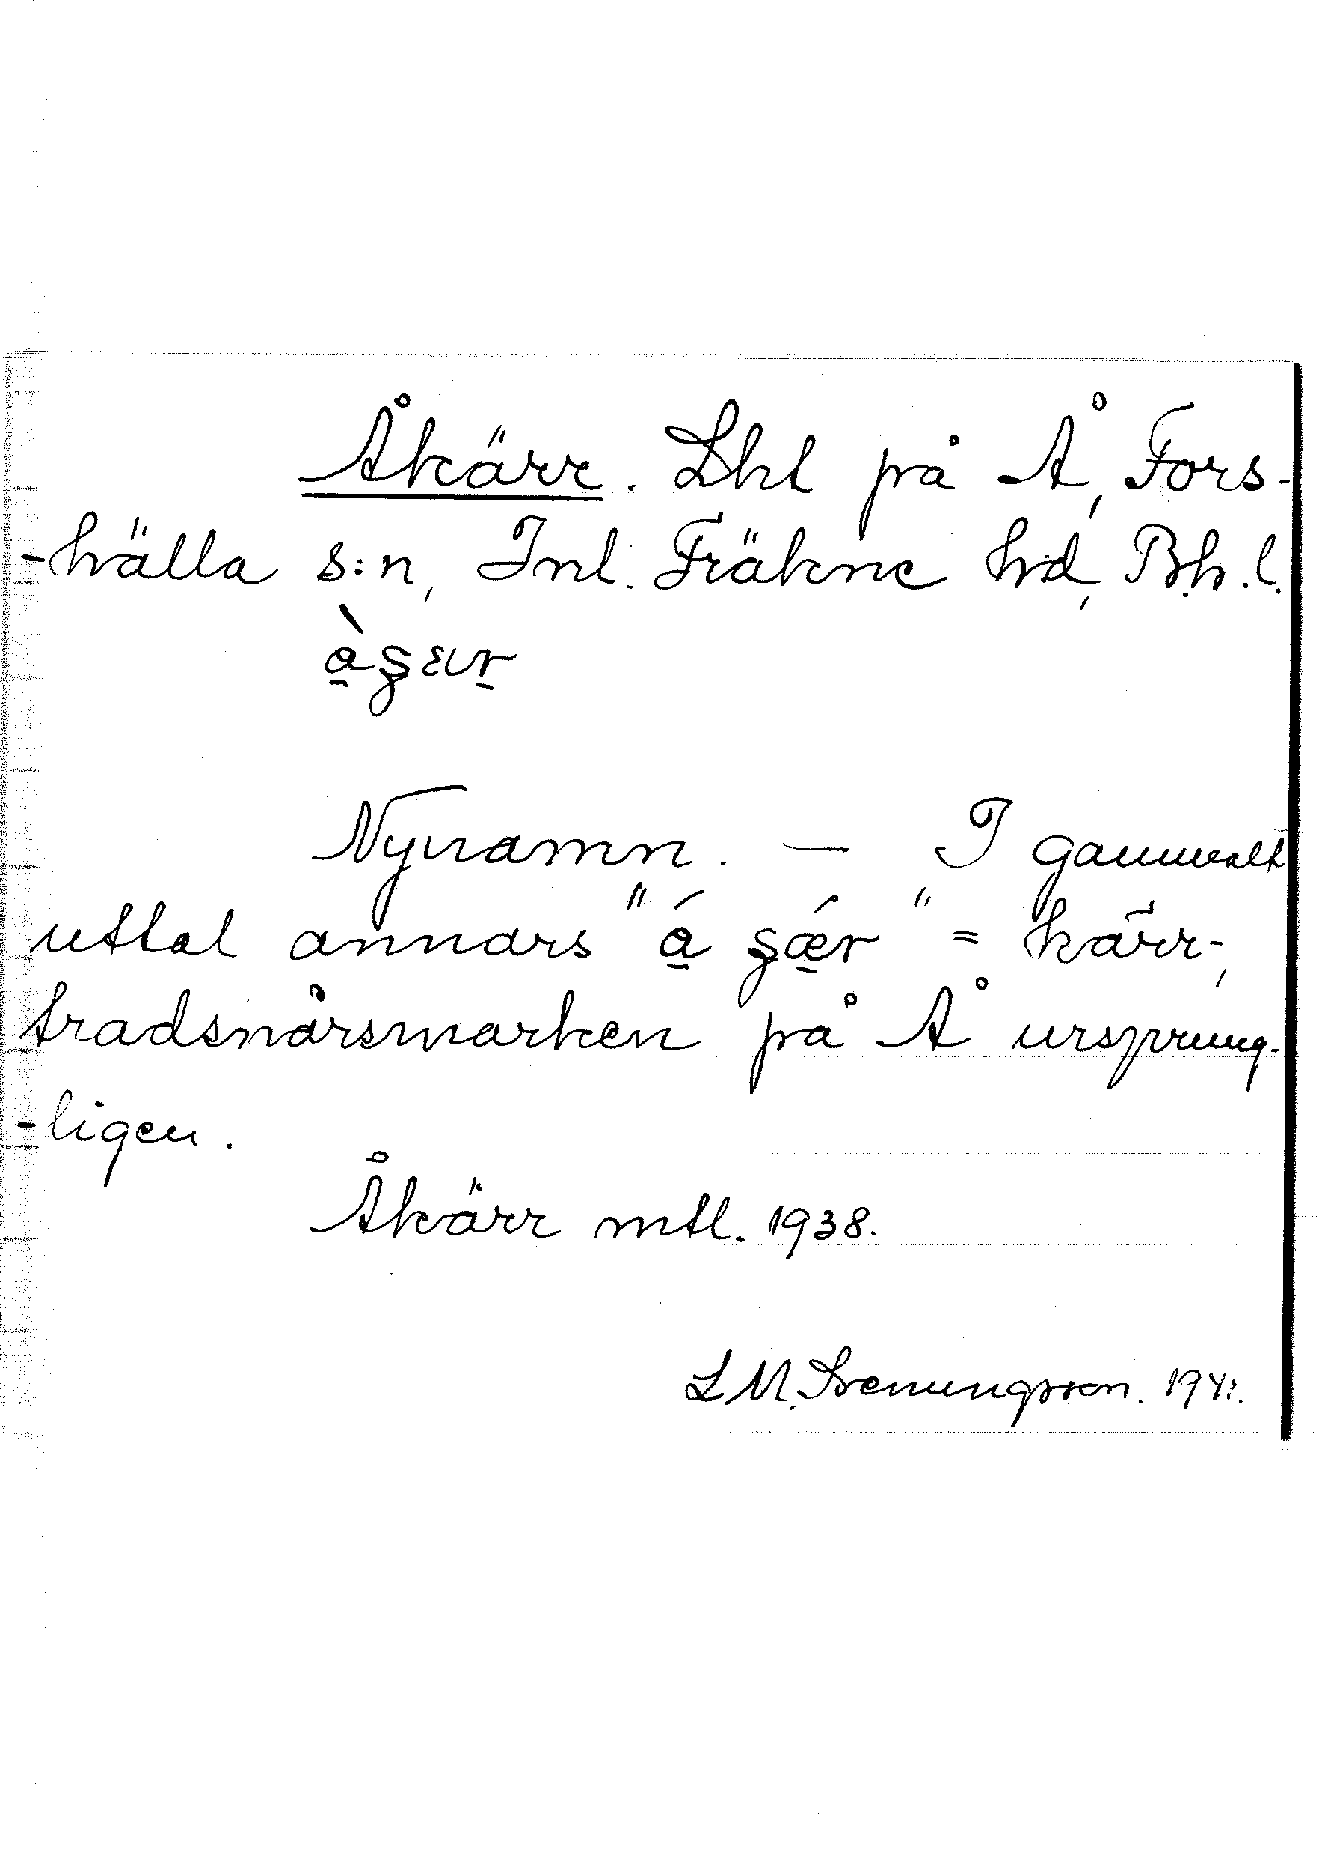 Åkärr. Lht på Å, Fors-
-hälla s:n, Inl. Fräkne hd, Bh.l.
Nynamn. — I gammalt
uttal annars "á šǽr" = kärr-,
tradsnårsmarken på Å ursprung-
-ligen.
Åkärr mtl. 1938.
L M. Svenungsson. 194